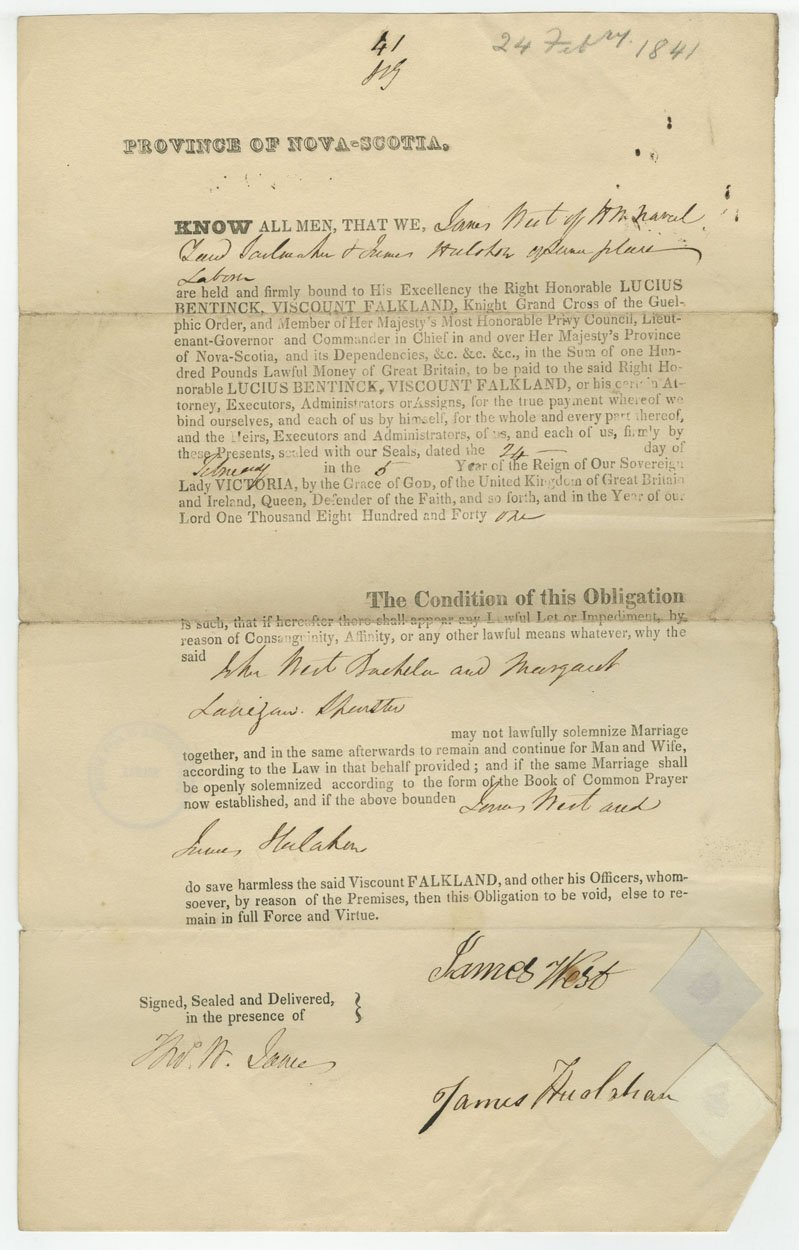 41
24 Febry. 1841
PROVINCE OF NOVA-SCOTIA.
KNOW ALL MEN, THAT WE, James West of H M Naval
Yard Sailmaker & James of same place
Labourer
are held and firmly bound to His Excellency the Right Honorable LUCIUS
BENTINCK, VISCOUNT FALKLAND, Knight Grand Cross of the Guel-
phic Order, and Member of Her Majesty's Most Honorable Privy Council, Lieut-
enant-Governor and Commander in Chief in and over Her Majesty's Province
of Nova-Scotia, and its Dependencies, &c. &c. &c., in the Sum of one Hun-
dred Pounds Lawful Money of Great Britain, to be paid to the said Right Ho-
norable LUCIUS BENTINCK, VISCOUNT FALKLAND, or his certain At-
torney, Executors, Administrators or Assigns, for the true payment whereof we
bind ourselves, and each of us by himself, for the whole and every part thereof,
and the Heirs, Executors and Administrators, of us, and each of us, firmly by
these Presents, sealed with our Seals, dated the 24 day of
February in the 5 Year of the Reign of Our Sovereign
Lady VICTORIA, by the Grace of GOD, of the United Kingdom of Great Britain
and Ireland, Queen, Defender of the Faith, and so forth, and in the Year of our
Lord One Thousand Eight Hundred and Forty one
The Condition of this Obligation
is such, that if hereafter there shall appear any Lawful Let or Impediment, by
reason of Consanguinity, Affinity, or any other lawful means whatever, why the
said John West Bachelor and Margaret
Lanigan Spinster
may not lawfully solemnize Marriage
together, and in the same afterwards to remain and continue for Man and Wife,
according to the Law in that behalf provided; and if the same Marriage shall
be openly solemnized according to the form of the Book of Common Prayer
now established, and if the above bounden James West and
James
do save harmless the said Viscount FALKLAND, and other his Officers, whom-
soever, by reason of the Premises, then this Obligation to be void, else to re-
main in full Force and Virtue.
James West
Signed, Sealed and Delivered,
in the presence of
Thos. W. James
James